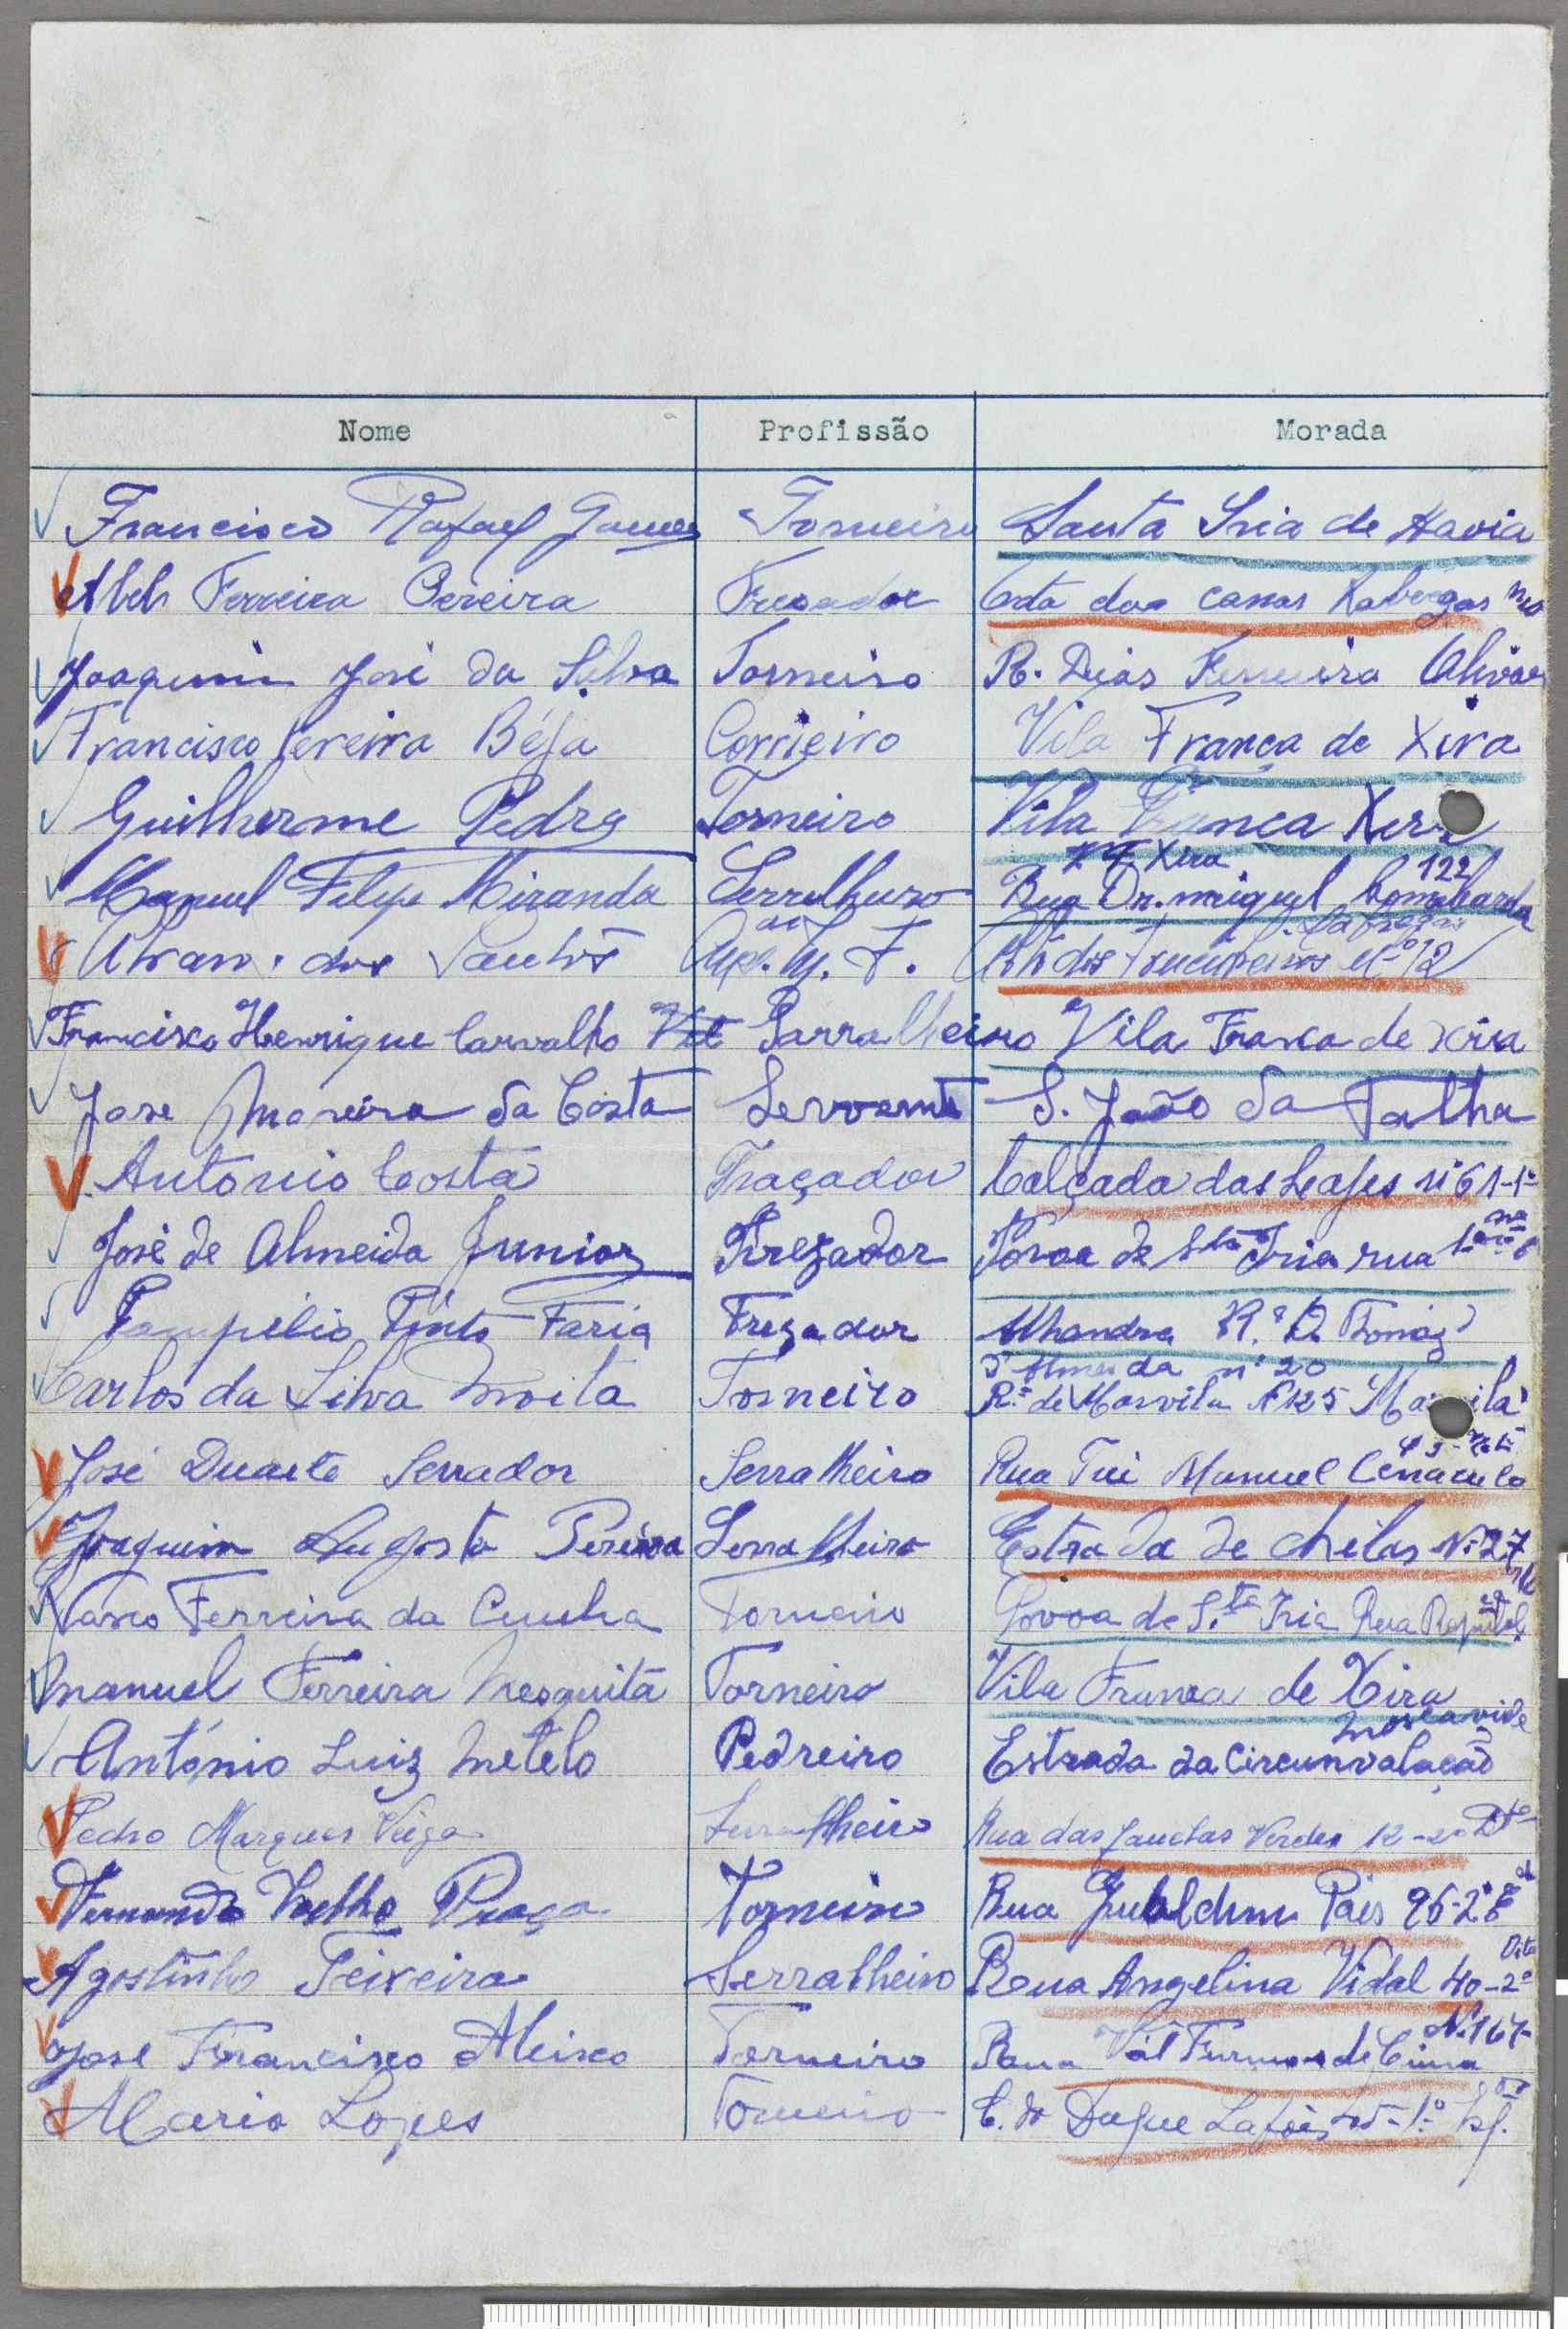 Nome Profissão Morada
Francisco Rafael Gomes Torneiro Santa Iria de Azoia
Abel Ferreira Pereira Fresador dos casas Rabregas
Joaquim José da Silva Torneiro R. Dias Ferreira Olivaes
Francisco Pereira Béja Corrieiro Vila Franca de Xira
Guilherme Pedro Torneiro Vila Franca Xira
Xira 122
Manuel Filipe Miranda Serralheiro Rua Dr. miguel bombarda
dos Santos
Francisco Henrique Carvalho Sarralheiro Vila Franca de Xira
Jose Moreira da Costa Servente S. João da Talha
António Costa Traçador Calçada das Lages nº 61-1º
José de Almeida Junior Frezador Povoa de Sta Iria rua
Pompilio Pinto Faria Frezador Alhandra R.ª D. Tomáz
d'Almeida nº 20
Carlos da Silva Moita Torneiro R.ª de Marvila Nº 125
José Duarte Serrador Serralheiro Rua Frei Manuel Cenaculo
Joaquim Augosto Pereira Serralheiro Estrada de chelas Nº 27
Vasco Ferreira da Cunha Torneiro Povoa de S.ta Iria Rua
Manuel Ferreira Mesquita Torneiro Vila Franca de Xira
Moscavide
António Luiz Metelo Pedreiro Estrada da Circunvalação
Pedro Marques Veiga Serralheiro Rua das Janelas Verdes 12-2º Dto
Fernando Coelho Praça Torneiro Rua Gualdim Pais 96-2º
Dto
Agostinho Teixeira Serralheiro Rua Angelina Vidal 40-2º
Nº 167
José Francisco Aleixo Torneiro Rua Val Formoso de Cima
Mario Lopes Torneiro C. do Duque Lafões 1º